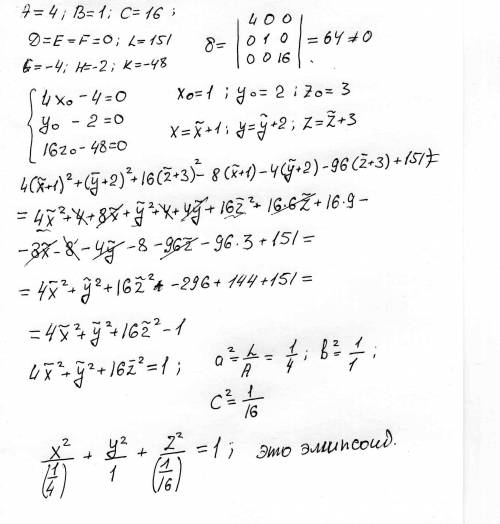 A=4; B=1; C=16;
D=E=F=0; L=151
G=-4; H=-2; K=-48
δ= | 4 0 0 | 0 1 0 | 0 0 16 | =64≠0.
{ 4x₀-4=0
y₀-2=0
16z₀-48=0
x₀=1; y₀=2; z₀=3
x=x̃+1; y=ỹ+2; z=z̃+3
4(x̃+1)²+(ỹ+2)²+16(z̃+3)²-8(x̃+1)-4(ỹ+2)-96(z̃+3)+151=
=4x̃²+4+8x̃+ỹ²+4+4ỹ+16z̃²+16·6z̃+16·9-
-8x̃-8-4ỹ-8-96z̃-96·3+151=
=4x̃²+ỹ²+16z̃²-296+144+151=
=4x̃²+ỹ²+16z̃²-1
4x̃²+ỹ²+16z̃²=1; a²=L/A=1/4; b²=1/1;
c²=1/16
x²/(1/4)+y²/1+z²/(1/16)=1; это элипсоид.